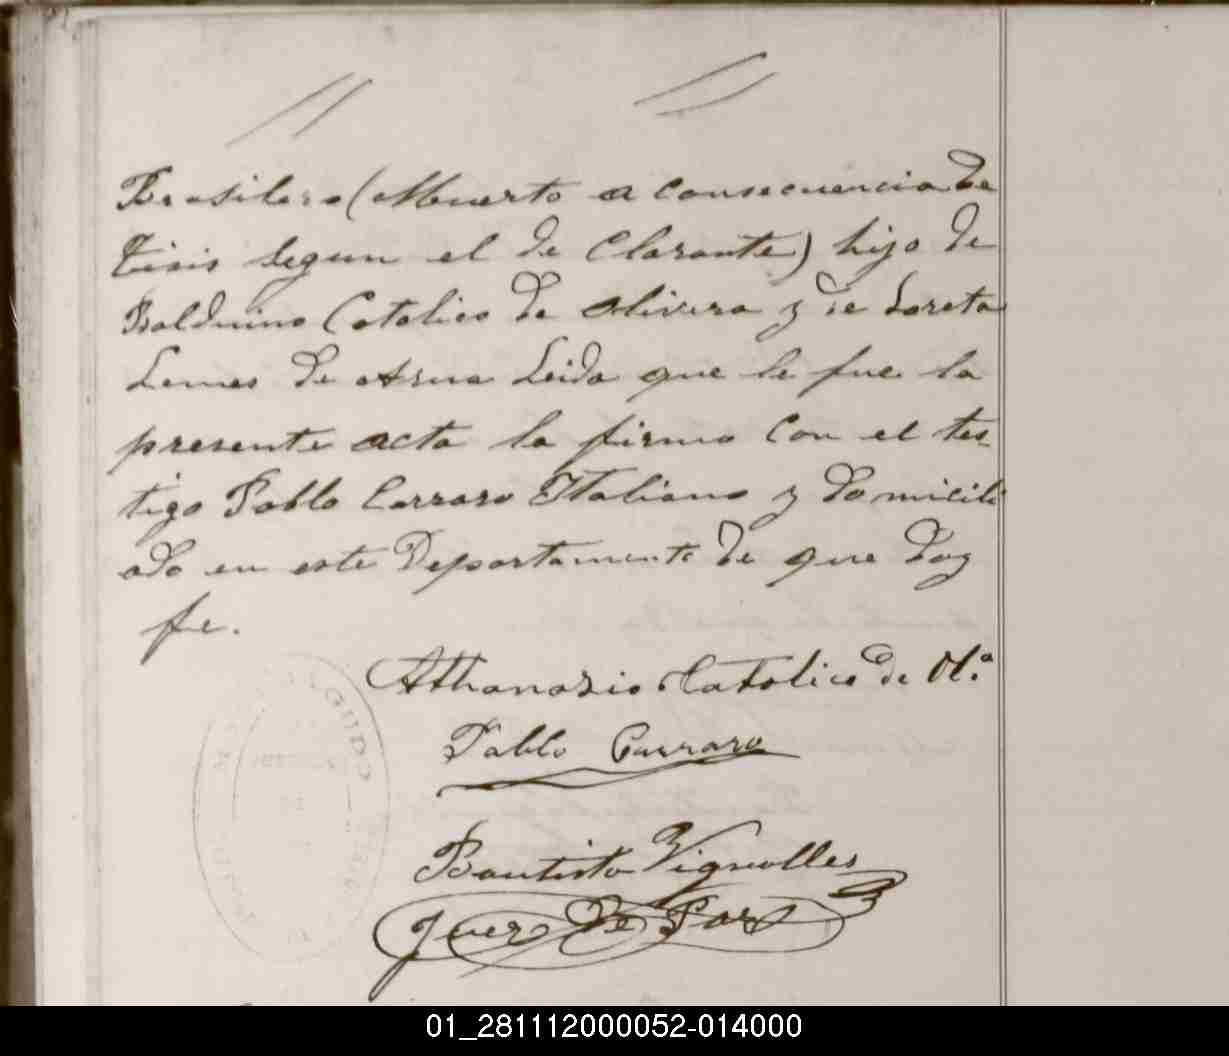 Brasilero (Muerto a consecuencia de
Tisis segun el de Clarante) hijo de
Balduino Catolico de Olivera y de Loreta
Lemes de Arua Leida que le fue la
presente acta la firmo con el tes
tigo Pablo Carraro Italiano y domicili
ado en este Departamento de que doy
fe.
Athanazio Catolico de Olª
Pablo Carraro
Bautista Vignolles
Juez de Paz
01_281112000052-014000